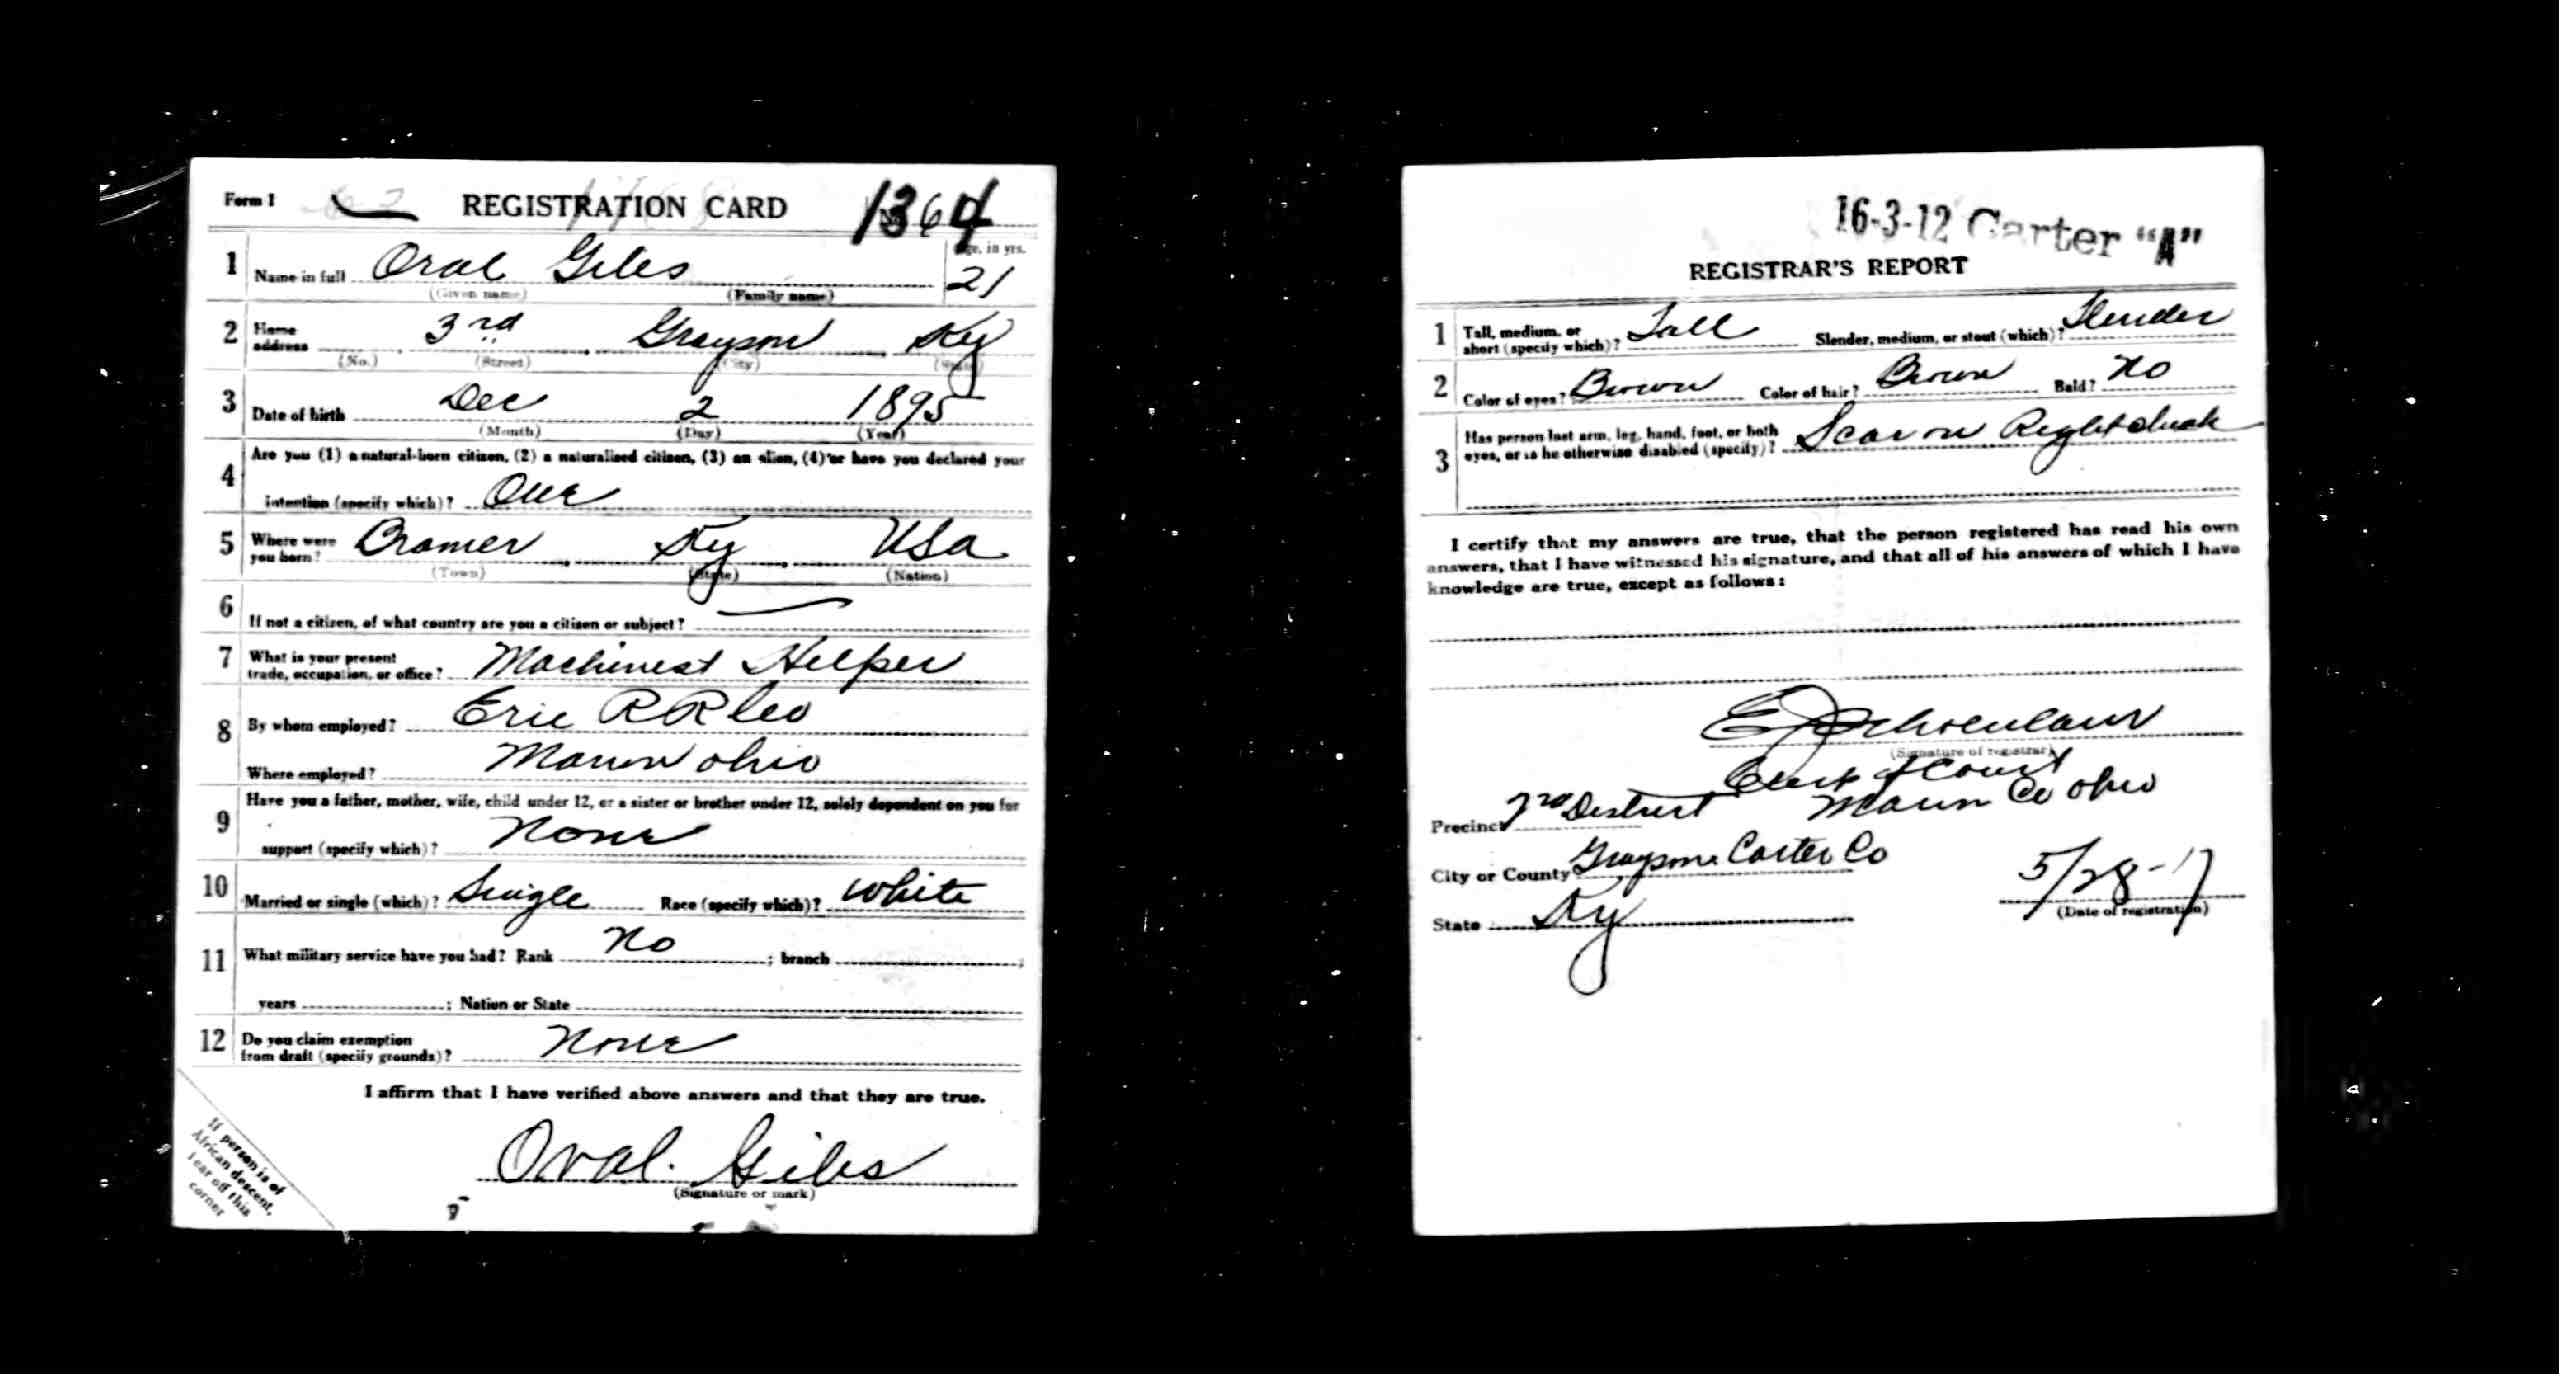 Form 1 REGISTRATION CARD 1364
1 Name in full Oral Giles Age, in yrs. 21
(Given name) (Family name)
2 Home address 3rd Grayson Ky
(No.) (Street) (City) (State)
3 Date of birth Dec 2 1895
(Month) (Day) (Year)
4 Are you (1) a natural-born citizen, (2) a naturalized citizen, (3) an alien, (4) or have you declared your
intention (specify which)? One
5 Where were you born? Cramer Ky USa
(Town) (State) (Nation)
6 If not a citizen, of what country are you a citizen or subject?
7 What is your present trade, occupation, or office? Machinest Helper
8 By whom employed? Erie RR Co
Where employed? Marion ohio
9 Have you a father, mother, wife, child under 12, or a sister or brother under 12, solely dependent on you for
support (specify which)? None
10 Married or single (which)? Single Race (specify which)? White
11 What military service have you had? Rank No ; branch ;
years ; Nation or State
12 Do you claim exemption from draft (specify grounds)? None
I affirm that I have verified above answers and that they are true.
Oral. Giles
(Signature or mark)
If person is of
African descent,
tear off this
corner
16-3-12 Carter "A"
REGISTRAR'S REPORT
1 Tall, medium, or short (specify which)? Tall Slender, medium, or stout (which)? Slender
2 Color of eyes? Brown Color of hair? Brown Bald? No
3 Has person lost arm, leg, hand, foot, or both
eyes, or is he otherwise disabled (specify)? Scar on Right cheek
I certify that my answers are true, that the person registered has read his own
answers, that I have witnessed his signature, and that all of his answers of which I have
knowledge are true, except as follows:
(Signature of registrar)
Clerk of Court
Precinct District Marion Co Ohio
City or County Grayson Carter Co 5/28-17
State Ky (Date of registration)